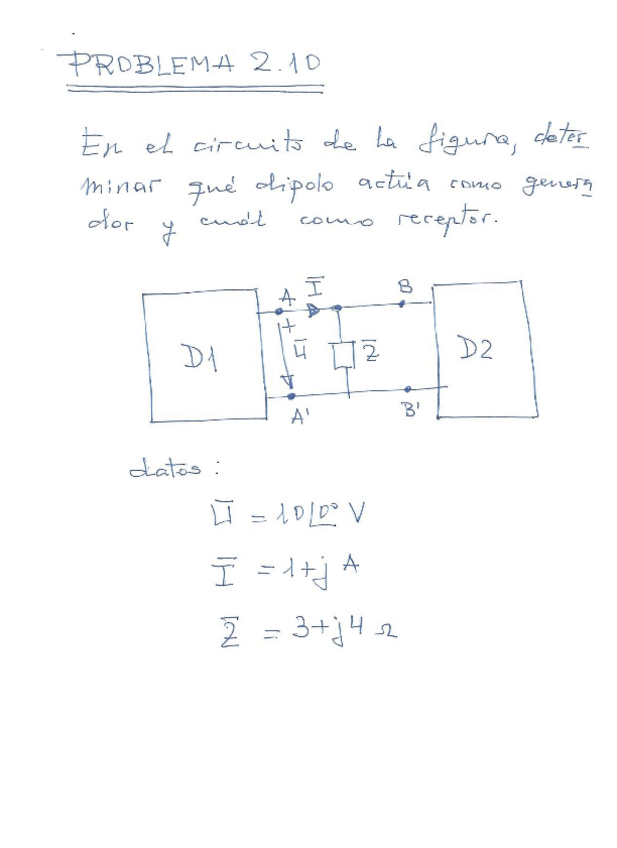 PROBLEMA 2.10
En el circuito de la figura, deter
minar qué dipolo actúa como genera
dor y cuál como receptor.
A I B
+
D1 U Z D2
A' B'
datos:
U = 10∠0° V
I = 1+j A
Z = 3+j4 Ω